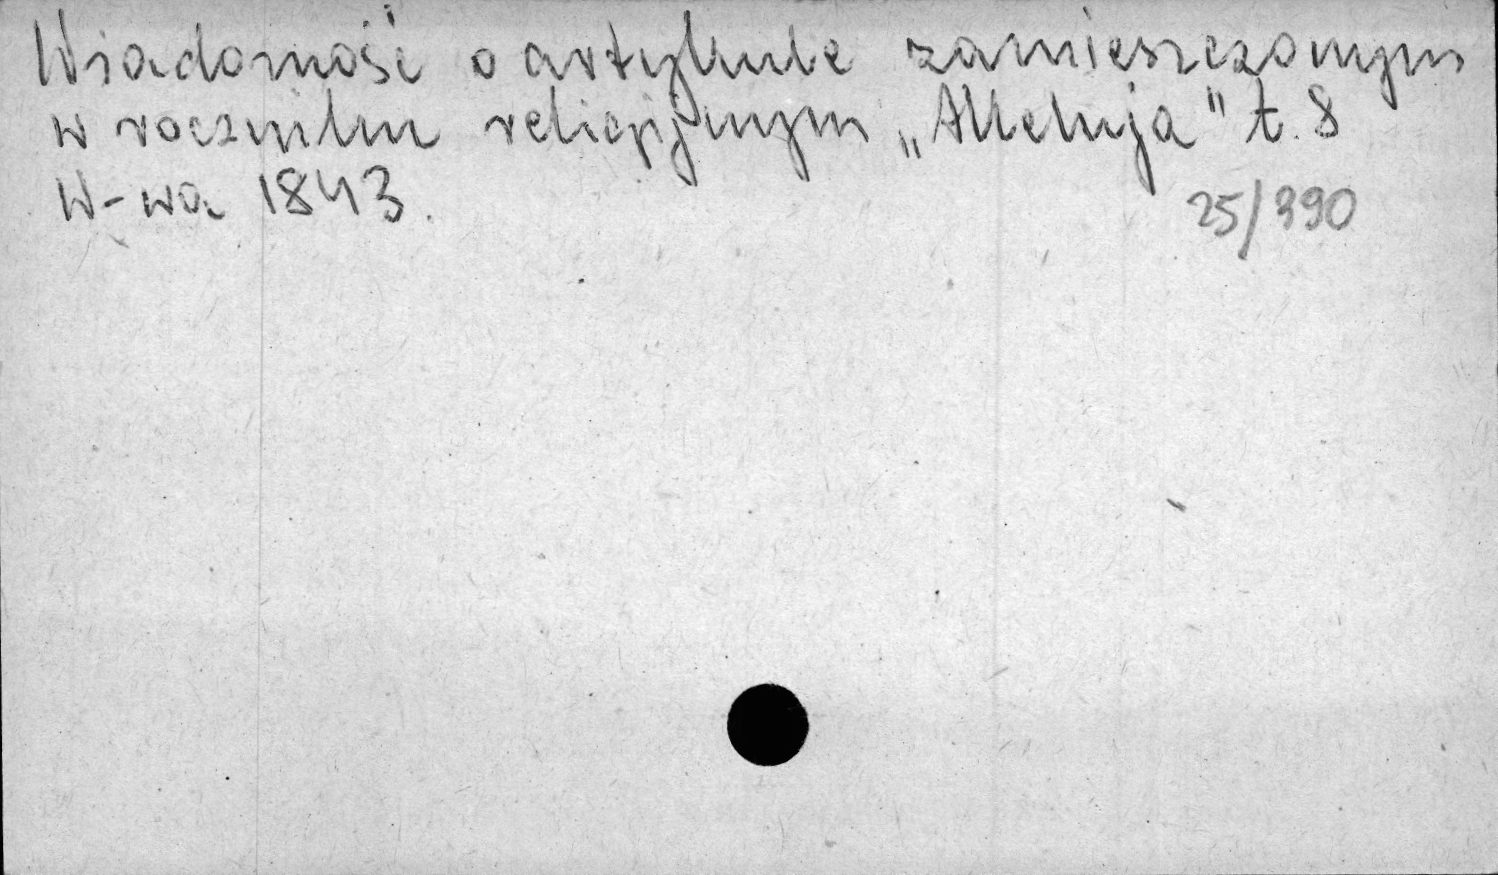 Wiadomość o artykule zamieszczonym
w roczniku religijnym „Alleluja" t. 8
W-wa 1843.
25/390